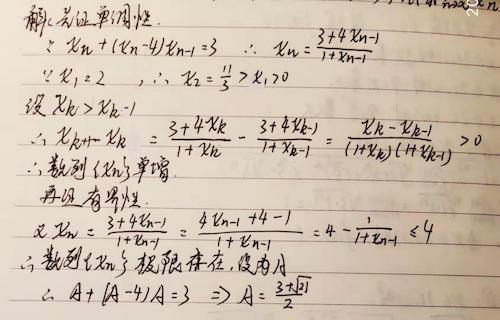 解：先证单调性.
∵ xₙ + (xₙ-4)xₙ₋₁ = 3 ∴ xₙ = (3+4xₙ₋₁)/(1+xₙ₋₁)
∵ x₁ = 2 , ∴ x₂ = 11/3 > x₁ > 0
设 xₖ > xₖ₋₁
∴ xₖ₊₁ - xₖ = (3+4xₖ)/(1+xₖ) - (3+4xₖ₋₁)/(1+xₖ₋₁) = (xₖ - xₖ₋₁)/((1+xₖ)(1+xₖ₋₁)) > 0
∴ 数列{xₙ}单增.
再证有界性.
又 xₙ = (3+4xₙ₋₁)/(1+xₙ₋₁) = (4xₙ₋₁+4-1)/(1+xₙ₋₁) = 4 - 1/(1+xₙ₋₁) ≤ 4
∴ 数列{xₙ}极限存在, 设为A
∴ A + (A-4)A = 3 ⇒ A = (3+√21)/2